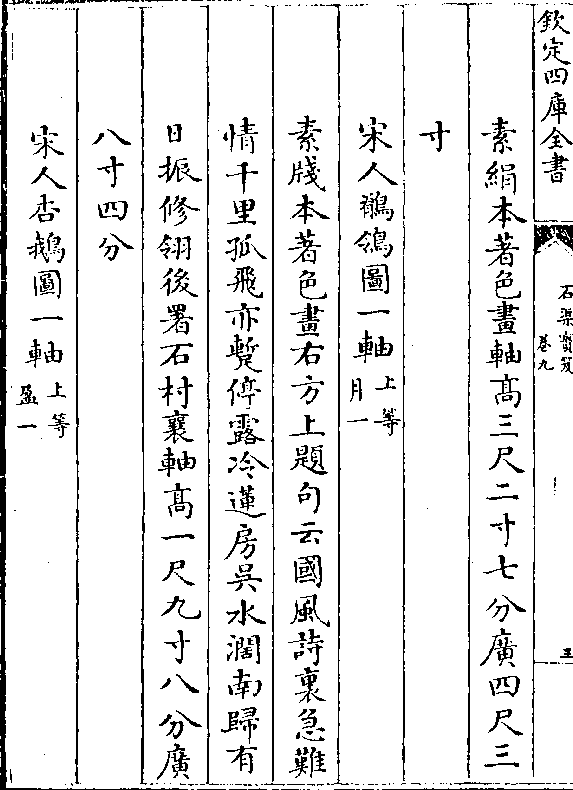 欽定四庫全書
石渠寳笈
卷九
素絹本著色畫軸髙三尺二寸七分廣四尺三
寸
宋人鶺鴒圖一軸上等
月一
素牋本著色畫右方上題句云國風詩裏急難
情千里孤飛亦蹔停露冷蓮房吳水濶南歸有
日振修翎後署石村襄軸髙一尺九寸八分廣
八寸四分
宋人杏鵝圖一軸上等
盈一